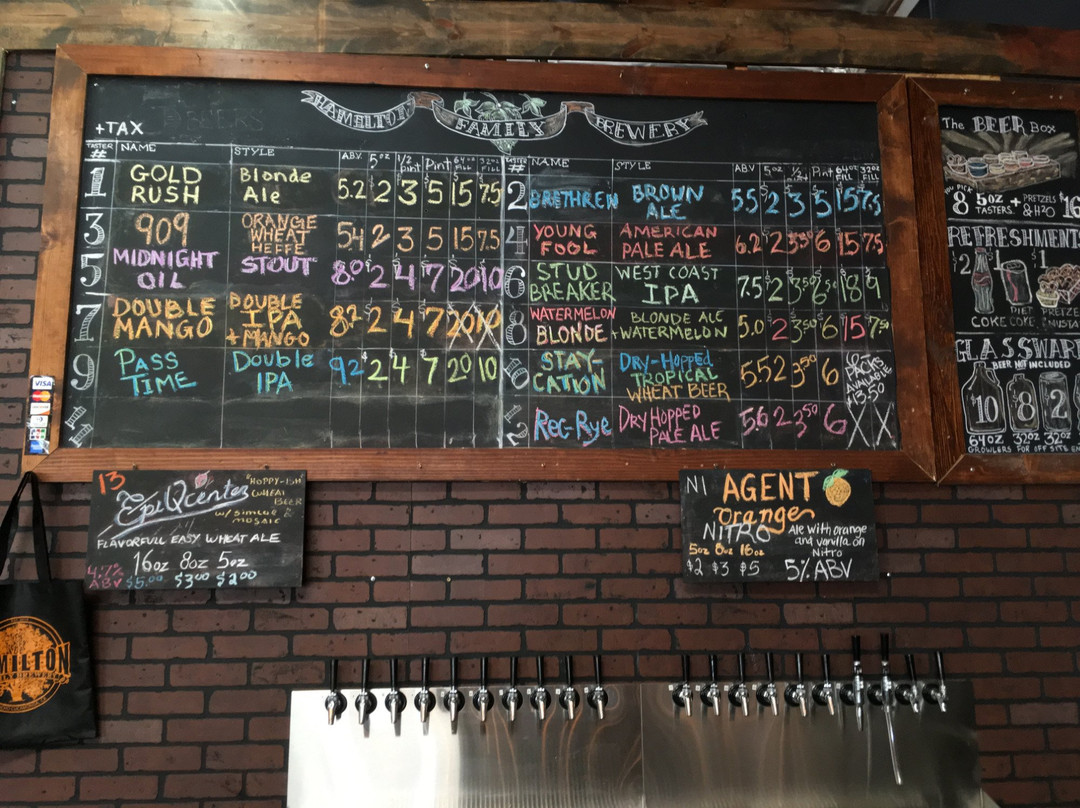 HAMILTON FAMILY BREWERY
+TAX
TASTER # NAME STYLE ABV 5oz 1/2 Pint Pint 64oz FILL 32oz FILL
1 GOLD RUSH Blonde Ale 5.2 $2 3 5 15 7.5
3 909 ORANGE WHEAT HEFFE 5.4 2 3 5 15 7.5
5 MIDNIGHT OIL STOUT 8.0 $2 4 7 20 10
7 DOUBLE MANGO DOUBLE IPA + MANGO 8.2 $2 4 7 20 10
9 PASS TIME Double IPA 9.2 $2 4 7 20 10
11
TASTER # NAME STYLE ABV 5oz 1/2 Pint 64oz FILL 32oz FILL
2 BRETHREN BROWN ALE 5.5 $2 3 5 15 7.5
4 YOUNG FOOL AMERICAN PALE ALE 6.2 $2 3.50 6 15 7.5
6 STUD BREAKER WEST COAST IPA 7.5 $2 3.50 6.50 18 9
8 WATERMELON BLONDE BLONDE ALE +WATERMELON 5.0 $2 3.50 6 15 7.50
10 STAY-CATION DRY-HOPPED TROPICAL WHEAT BEER 5.5 2 3.50 6 PACKS AVAILABLE 13.50
12 Rec-Rye DRY HOPPED PALE ALE 5.6 2 3.50 6 X X
The BEER BOX
YOU PICK
8 5oz TASTERS + PRETZELS & H2O $16
REFRESHMENT
$2 $1 $1
COKE DIET COKE PRETZE
& MUSTA
GLASSWAR
BEER NOT INCLUDED
10 8 2
64oz 32oz 32oz
GROWLERS FOR OFF SITE
VISA
13 EpiQcenter "HOPPY-ISH" WHEAT BEER
W/ SIMCOE & MOSAIC
FLAVORFULL EASY WHEAT ALE
16oz 8oz 5oz
4.7% ABV $5.00 $3.00 $2.00
N1 AGENT orange
NITRO Ale with orange and vanilla on Nitro
5oz 8oz 16oz
$2 $3 $5 5% ABV
MILTON